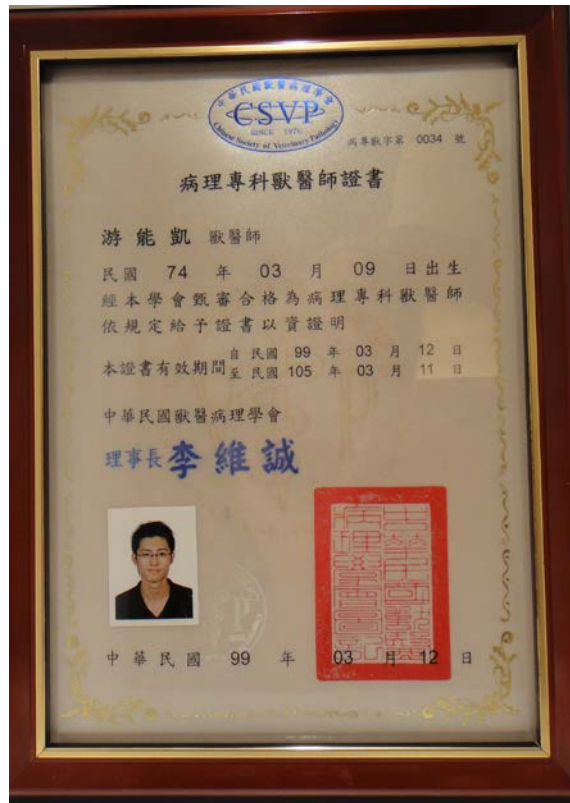 中華民國獸醫病理學會
CSVP
SINCE 1976
Chinese Society of Veterinary Pathology
病專獸字第 0034 號
病理專科獸醫師證書
游能凱 獸醫師
民國 74 年 03 月 09 日出生
經本學會甄審合格為病理專科獸醫師
依規定給予證書以資證明
本證書有效期間
自民國 99 年 03 月 12 日
至民國 105 年 03 月 11 日
中華民國獸醫病理學會
理事長 李維誠
中華民國獸醫病理學會圖記
中華民國 99 年 03 月 12 日